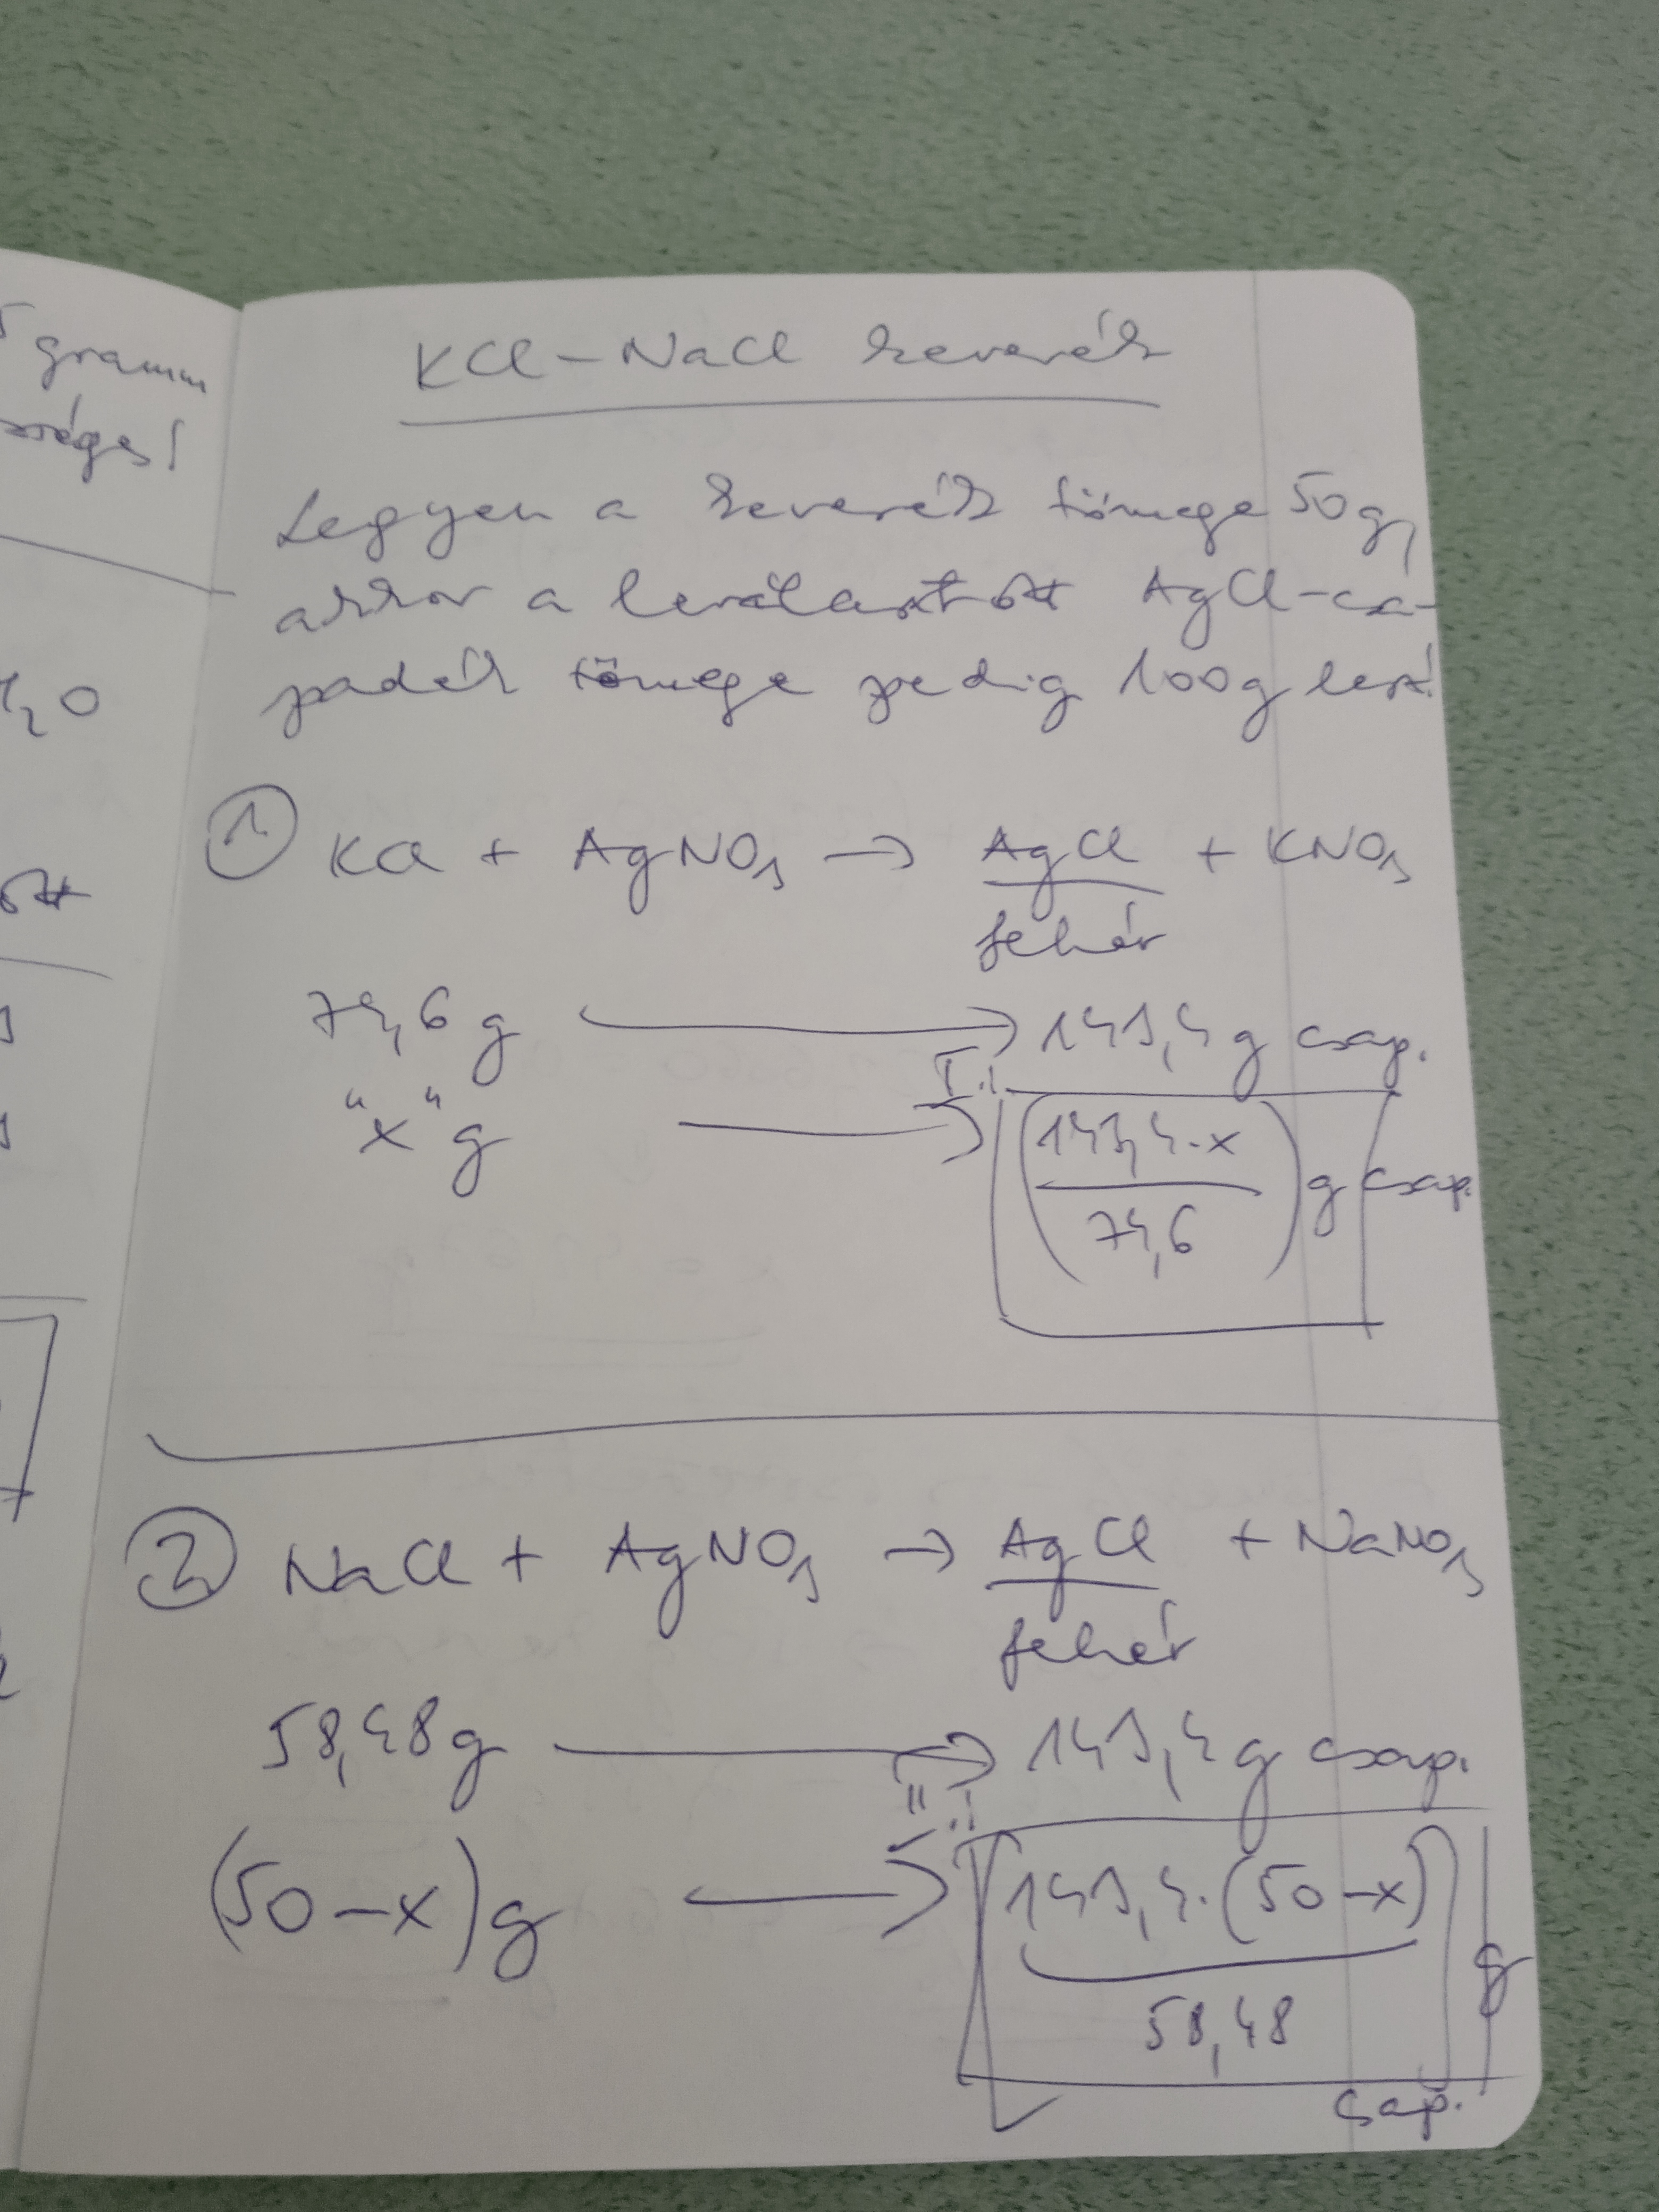 5 gramm
H₂O
KCl – NaCl keverék
Legyen a keverék tömege 50g,
akkor a leválasztott AgCl-csa-
padék tömege pedig 100g lesz!
① KCl + AgNO₃ → AgCl + KNO₃
fehér
74,6 g → 143,4 g csap.
I.:
"x" g → (143,4·x / 74,6) g csap.
② NaCl + AgNO₃ → AgCl + NaNO₃
fehér
58,48 g → 143,4 g csap.
II.:
(50 – x) g → [143,4·(50 – x) / 58,48] g
csap.